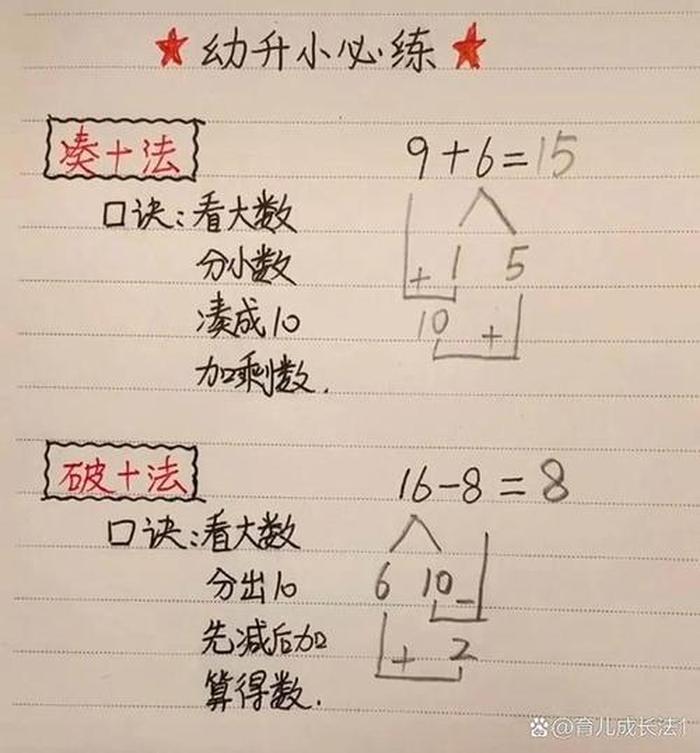 幼升小必练
凑十法
9+6=15
口诀:看大数
分小数
+ 1 5
凑成10
10 +
加剩数.
破十法
16-8=8
口诀:看大数
分出10
6 10 -
先减后加
+ 2
算得数.
@育儿成长法1